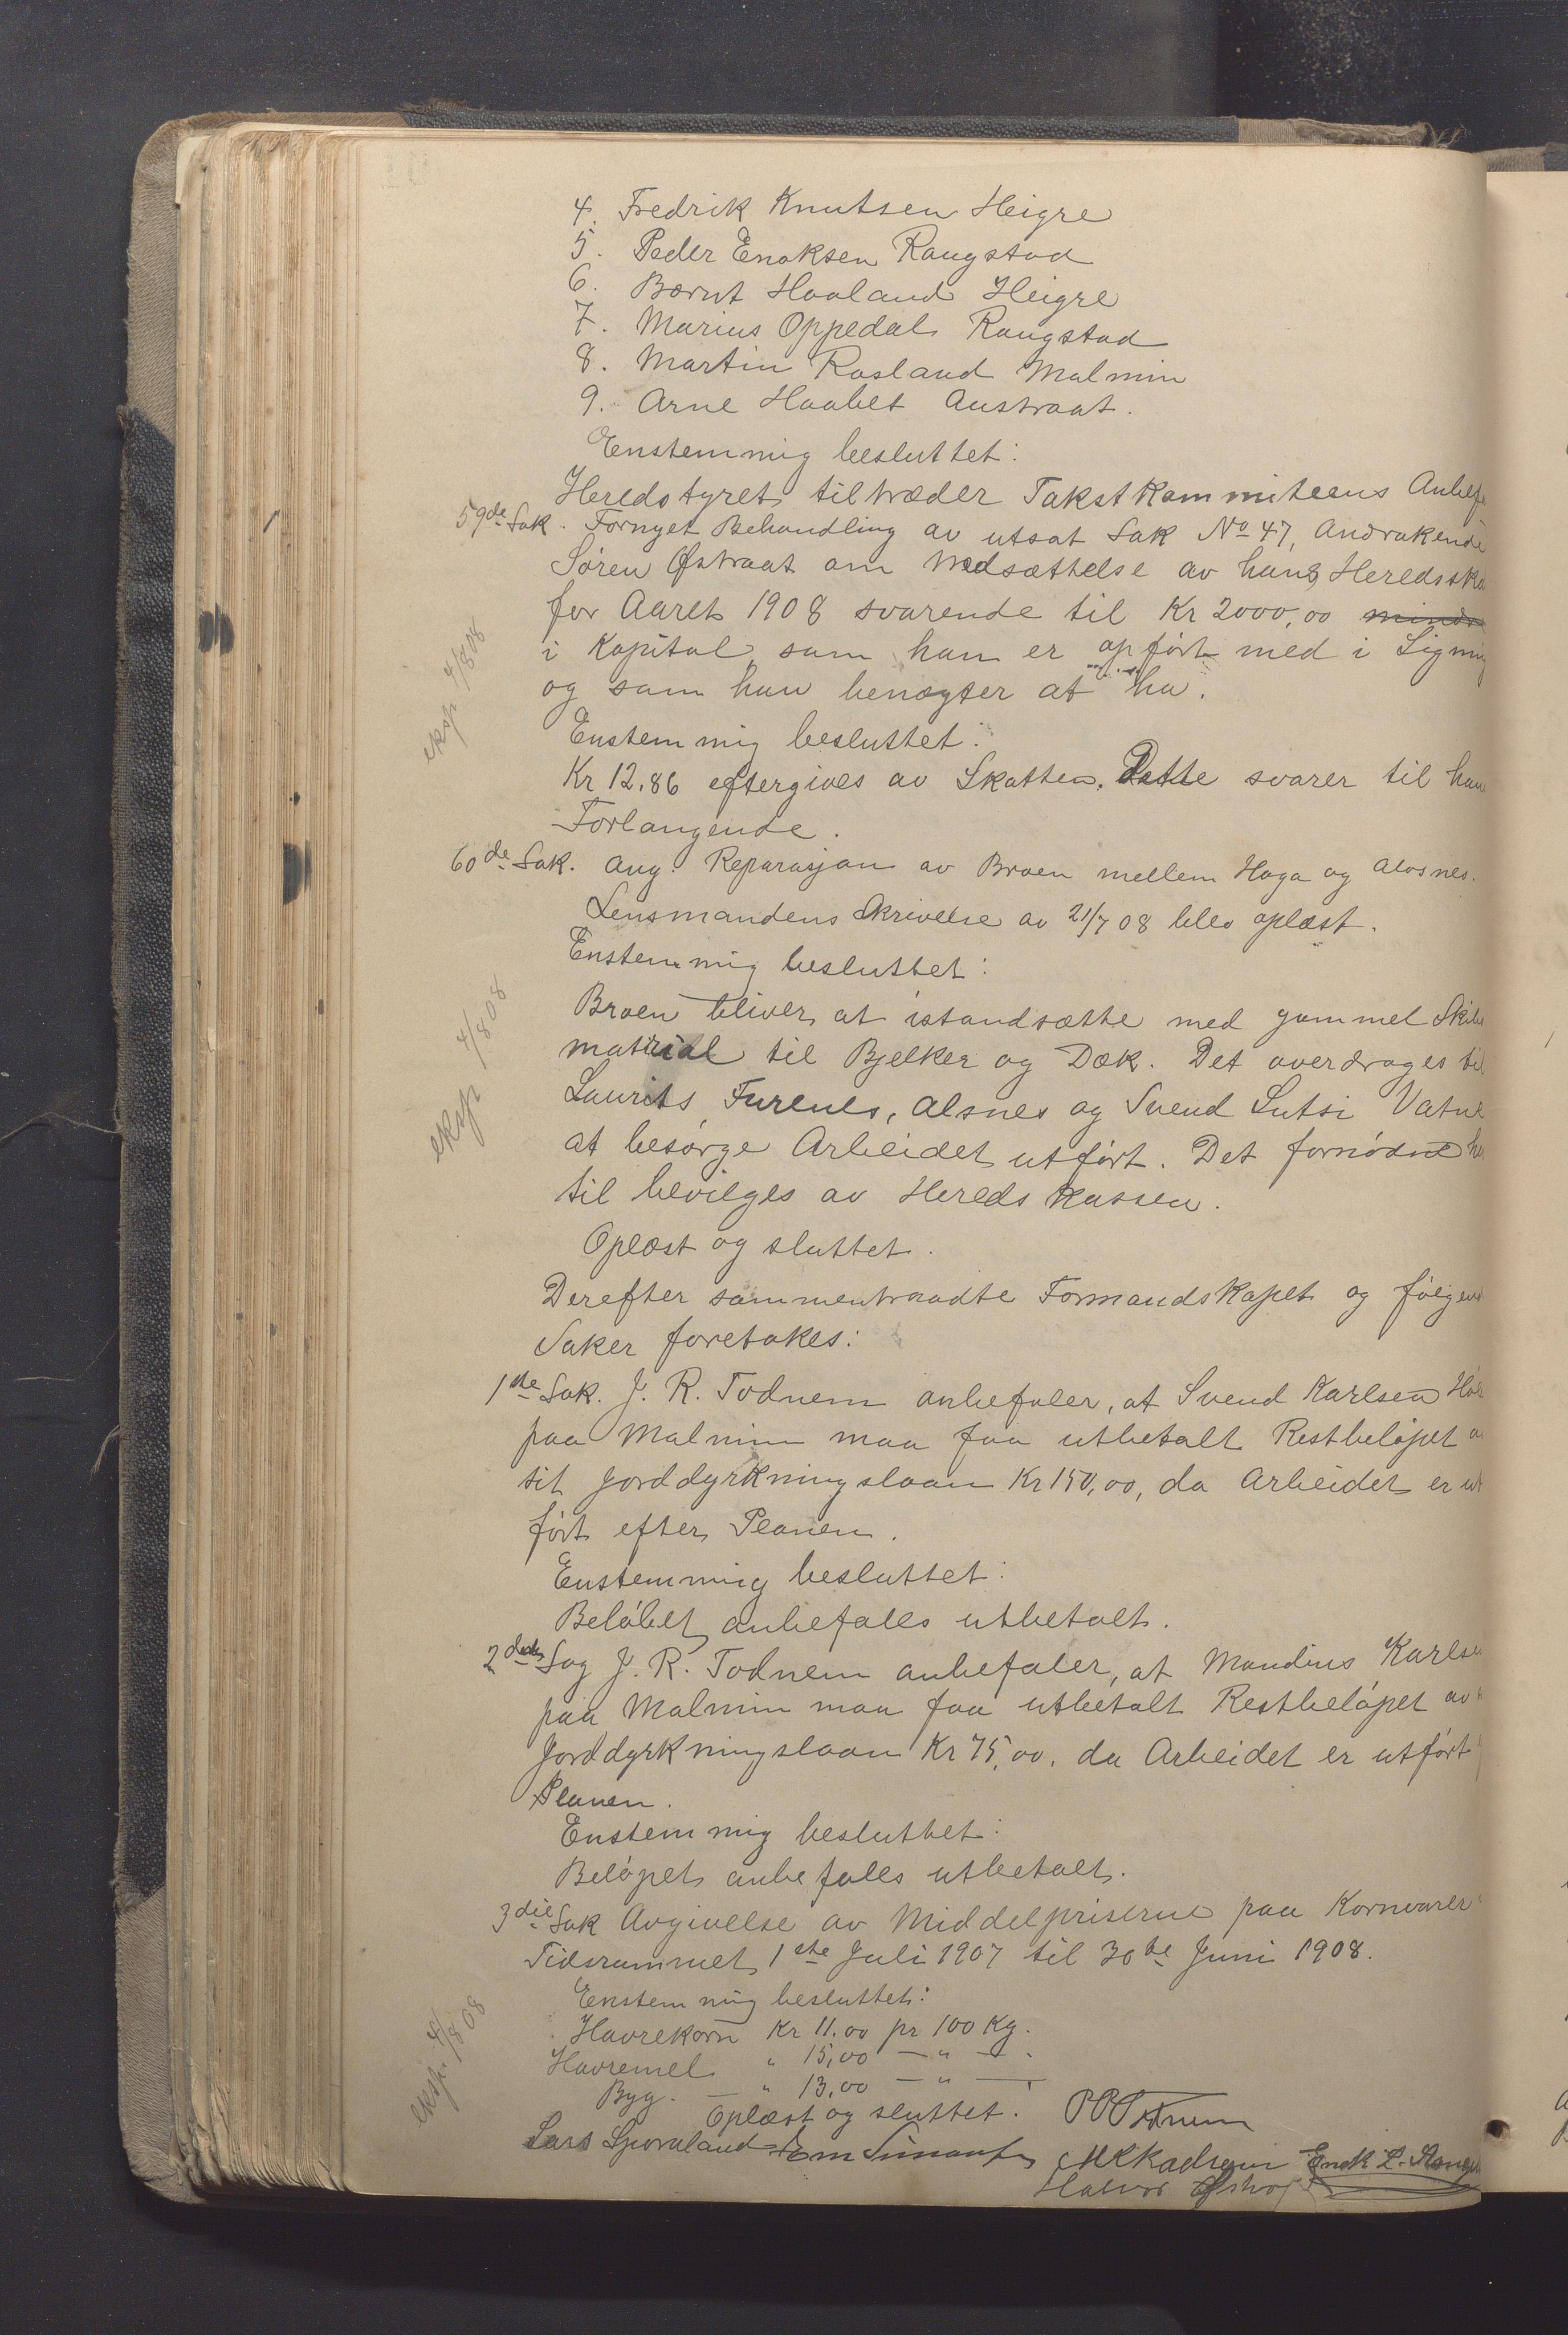 4. Fredrik Knutsen Heigre
5. Peder Enoksen Raugstad
6. Bernt Haaland Heigre
7. Marius Oppedal Raugstad
8. Martin Rosland Malmin
9. Arne Haabet Austraat.
Enstemmig besluttet:
Heredstyret tiltræder Takstkommiteens Anbef
59de Sak. Fornyet Behandling av utsat Sak No 47, Andrakende
Søren Østraat om Nedsættelse av hans Heredsska
for Aaret 1908 svarende til Kr 2000,00 mindr
i Kapital, som han er opført med i Ligni
og som han benægter at ha.
eksp 4/8 08
Enstemmig besluttet:
Kr 12.86 eftergives av Skatten. Dette svarer til han
Forlangende.
60de Sak. Ang. Reparasjon av Broen mellem Hoga og Alsnes.
Lensmandens Skrivelse av 21/7 08 blev oplæst.
Enstemmig besluttet:
Broen bliver at istandsætte med gammel Skibs
material til Bjelker og Dæk. Det overdrages til
Laurits Furenes, Alsnes og Svend Lutsi Vatne
eksp 4/8 08
at besørge Arbeidet utført. Det fornødne her
til bevilges av Heredskassen.
Oplæst og sluttet.
Derefter sammentraadte Formandskapet og følgend
Saker foretokes:
1ste Sak. J. R. Todnem anbefaler, at Svend Karlsen
paa Malmin maa faa utbetalt Restbeløpet a
sit Jorddyrkningslaan Kr 150,00, da Arbeidet er ut
ført efter Planen.
Enstemmig besluttet:
Beløbet anbefales utbetalt.
2den Sag J. R. Todnem anbefaler, at Mandius Karlse
paa Malmin maa faa utbetalt Restbeløpet av
Jorddyrkningslaan Kr 75,00, da Arbeidet er utført
Planen.
Enstemmig besluttet:
Beløpet anbefales utbetalt.
3die Sak Avgivelse av Middelpriserne paa Kornvarer
Tidsrummet 1ste Juli 1907 til 30te Juni 1908.
Enstemmig besluttet:
Havrekorn Kr 11.00 pr 100 Kg.
eksp. 4/8 08
Havremel " 15,00 — " —.
Byg. — " 13,00 — " —.
Oplæst og sluttet.
Lars Sporaland